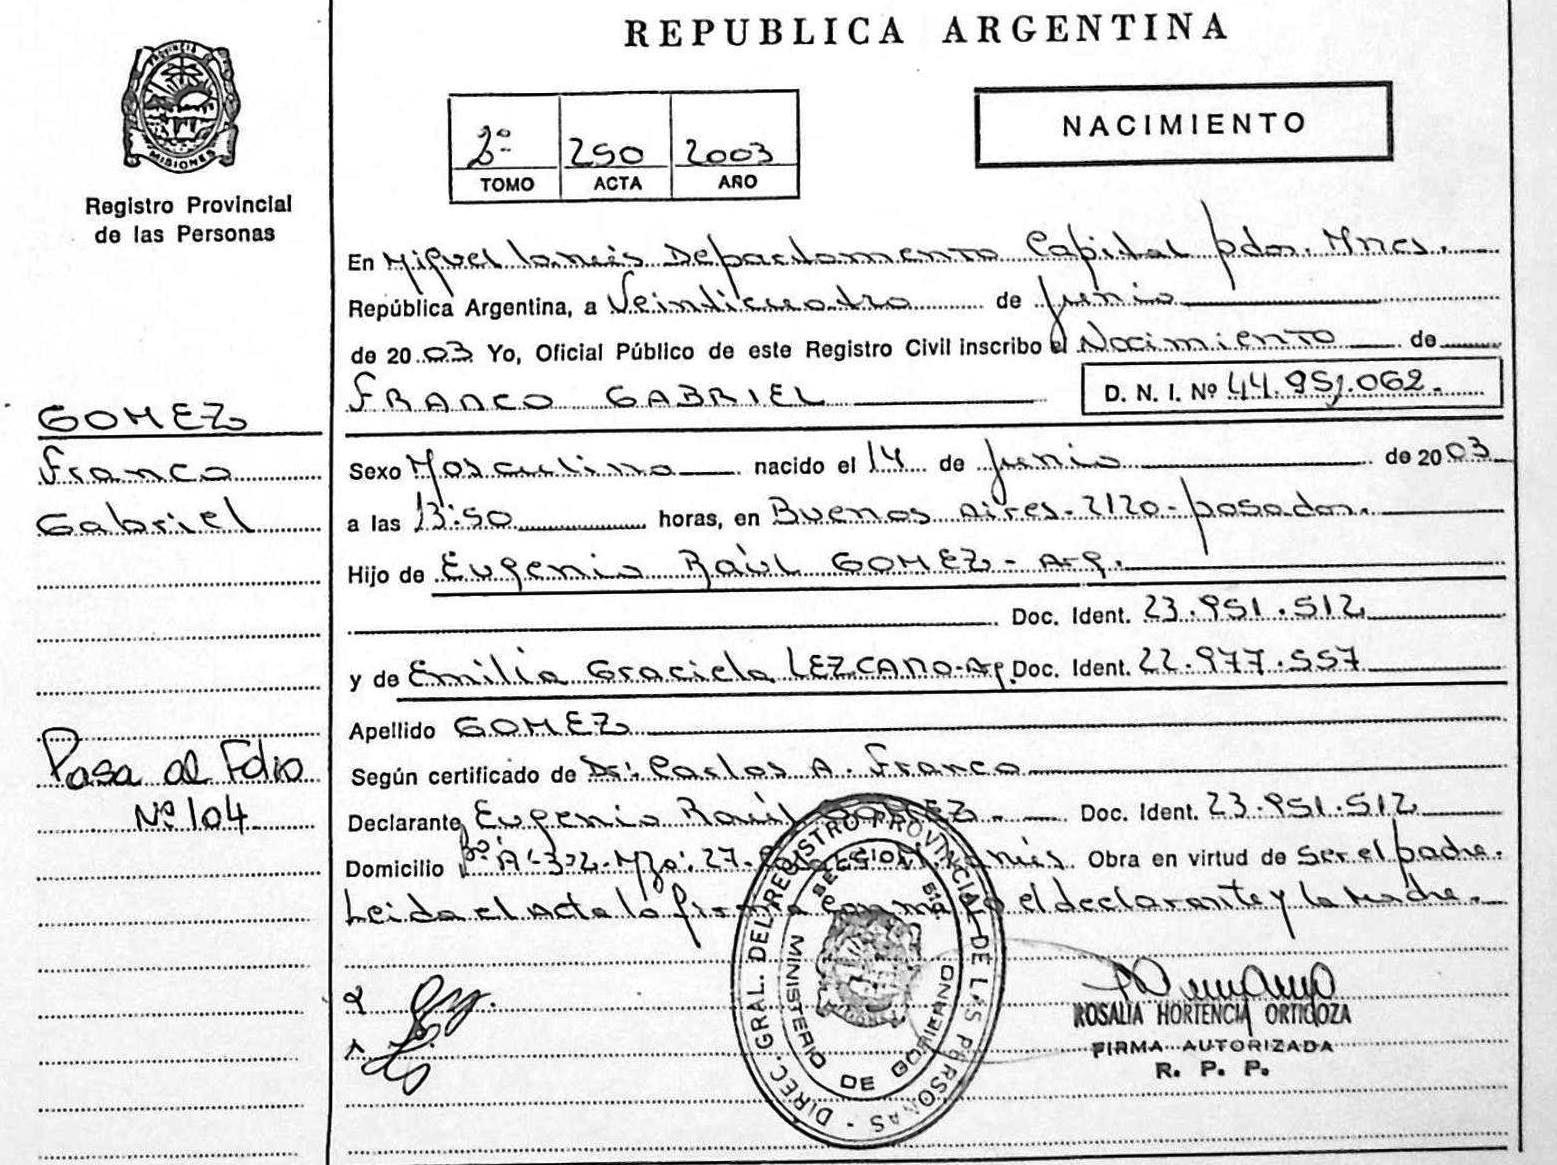 REPUBLICA ARGENTINA
PROVINCIA
MISIONES
Registro Provincial
de las Personas
2º 250 2003
TOMO ACTA AÑO
NACIMIENTO
En Miguel Lanús Departamento Capital pdas. Mnes.
República Argentina, a Veinticuatro de junio
de 2003 Yo, Oficial Público de este Registro Civil inscribo el Nacimiento de
FRANCO GABRIEL D. N. I. Nº 44.951.062.
GOMEZ
Franco
Gabriel
Sexo Masculino nacido el 14 de junio de 2003
a las 13:50 horas, en Buenos Aires-2120-posadas.
Hijo de Eugenio Raúl GOMEZ - Arg.
Doc. Ident. 23.951.512
y de Emilia Graciela LEZCANO-Arg. Doc. Ident. 22.977.557
Apellido GOMEZ
Según certificado de Dr. Carlos A. Franco
Pasa al Folio
Nº 104
Declarante Eugenio Raúl GOMEZ Doc. Ident. 23.951.512
Domicilio Bº A-3-2-Mza: 27- Lanús. Obra en virtud de Ser el padre.
Leida el Acta la firma conmigo el declarante y la Madre.
DIREC. GRAL. DEL REGISTRO PROVINCIAL DE LAS PERSONAS -
MINISTERIO DE GOBIERNO
ROSALIA HORTENCIA ORTIGOZA
FIRMA AUTORIZADA
R. P. P.